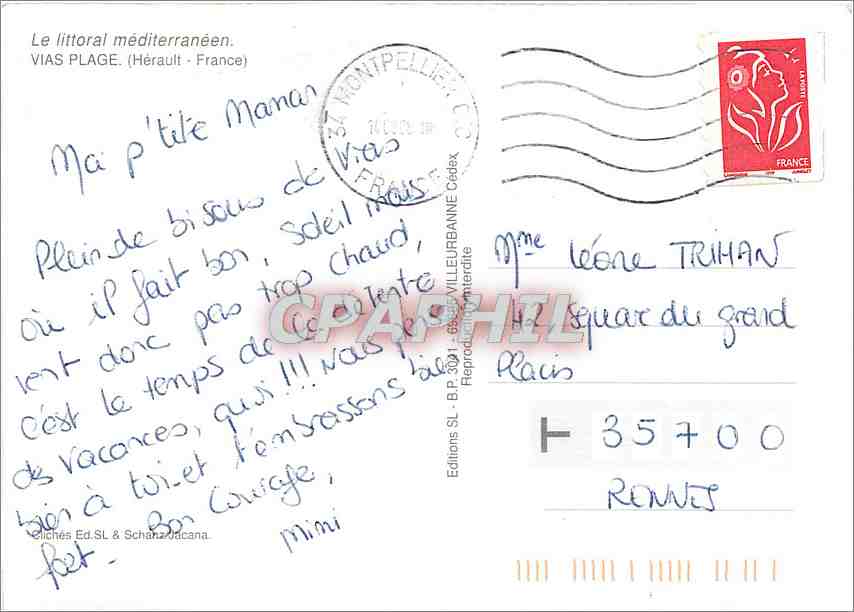 Le littoral méditerranéen.
VIAS PLAGE. (Hérault - France)
Ma p'tite Maman
Plein de bisous de Vias
où il fait bon, soleil mais
vent donc pas trop chaud,
c'est le temps de la détente
des vacances, quoi!!! Nous pensons
bien à toi et t'embrassons bien
fort. Bon Courage,
mimi
Clichés Ed.SL & Schanz/Jacana.
34 MONTPELLIER
FRANCE
Editions SL - B.P. 3041 - VILLEURBANNE Cédex
Reproduction interdite
LA POSTE
FRANCE
Mme Léone TRIHAN
42, squar du grand
Placis
35700
RENNES
CPAPHIL